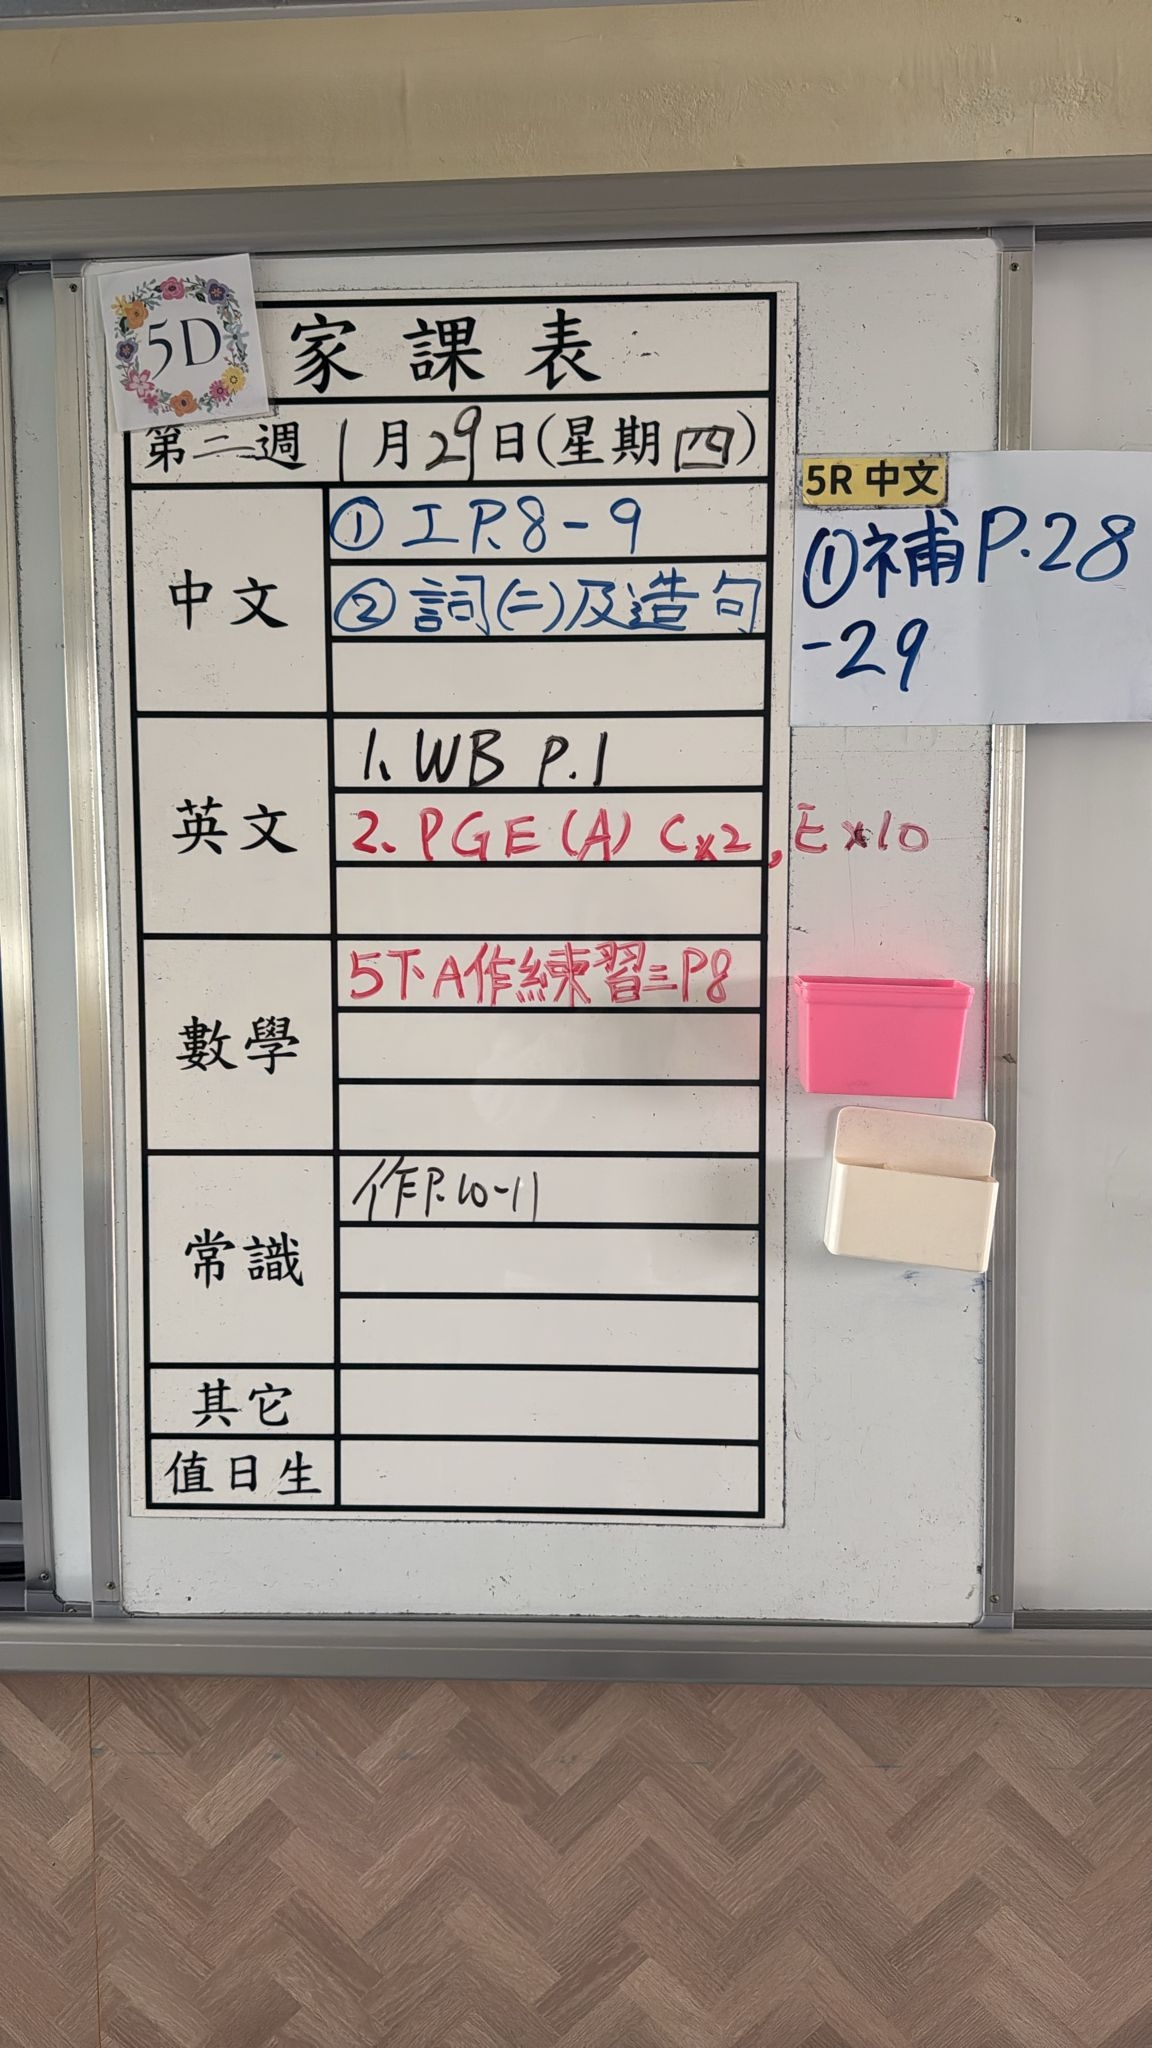 5D
家課表
第二週 1月29日(星期四)
中文
① 工P.8-9
② 詞(二)及造句
5R 中文
①補P.28
-29
英文
1. WB P.1
2. PGE (A) Cx2, Ex10
數學
5下A作練習三P8
常識
作P.10-11
其它
值日生